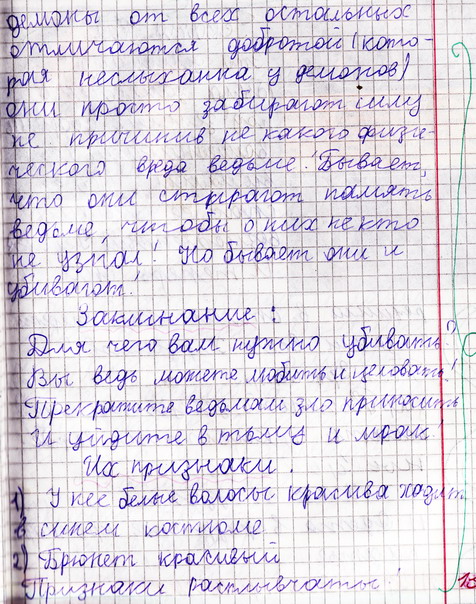 демоны от всех остальных
отличаются добротой (кото-
рая неслыханна у демонов)
они просто забирают силу
не причинив не какого физи-
ческого вреда ведьме! Бывает,
что они стирают память
ведьме, чтобы о них не кто
не узнал! Но бывает они и
убивают!
Заклинание:
Для чего вам нужно убивать?
Вы ведь можете любить и целовать!
Прекратите ведьмам зло приносить
И уйдите в тьму и мрак!
Их признаки.
1) У нее белые волосы красива ходит
в синем костюме
2) Брюнет красивый
Признаки расплывчаты!